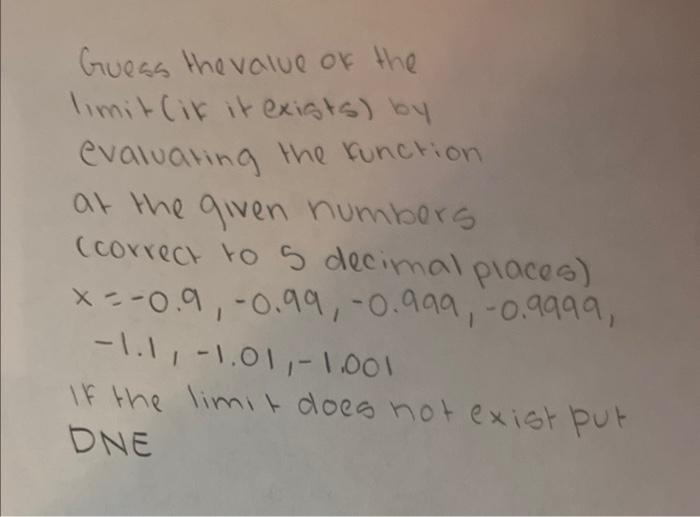 Guess the value of the
limit (if it exists) by
evaluating the function
at the given numbers
(correct to 5 decimal places)
x = -0.9, -0.99, -0.999, -0.9999,
-1.1, -1.01, -1.001
If the limit does not exist put
DNE